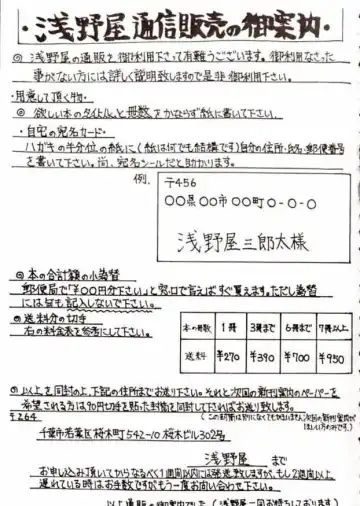 ・浅野屋通信販売の御案内・
◎ 浅野屋の通販を御利用下さって有難うございます。御利用なさった
事がない方には詳しく説明致しますので是非御利用下さい。
・用意して頂く物・
◎ 欲しい本のタイトルと冊数をかならず紙に書いて下さい。
・自宅の宛名カード・
ハガキの半分位の紙に(紙は何でも結構です)自分の住所・氏名・郵便番号
を書いて下さい。尚、宛名シールだと助かります。
例、
〒456
○○県○○市○○町○-○-○
浅野屋三郎太様
◎ 本の合計額の小為替
郵便局で「¥○○円分下さい」と窓口で言えばすぐ買えます。ただし為替
には何も記入しないで下さい。
◎ 送料分の切手
右の料金表を参考にして下さい。
本の冊数 1冊 3冊まで 6冊まで 7冊以上
送料 ¥270 ¥390 ¥700 ¥950
◎ 以上を同封の上、下記の住所までお送り下さい。それと次回の新刊案内のペーパーを
希望される方は90円切手を貼った封筒を同封して下さればお送り致します。
〒264
千葉市若葉区桜木町542-10 桜木ビル302号
浅野屋 まで
お申し込み頂いてからなるべく1週間以内には発送致しますが、もし2週間以上
遅れている時はお手数ですがもう一度お問い合わせ下さい。
以上通販の御案内でした(浅野屋一同お待ちしております)